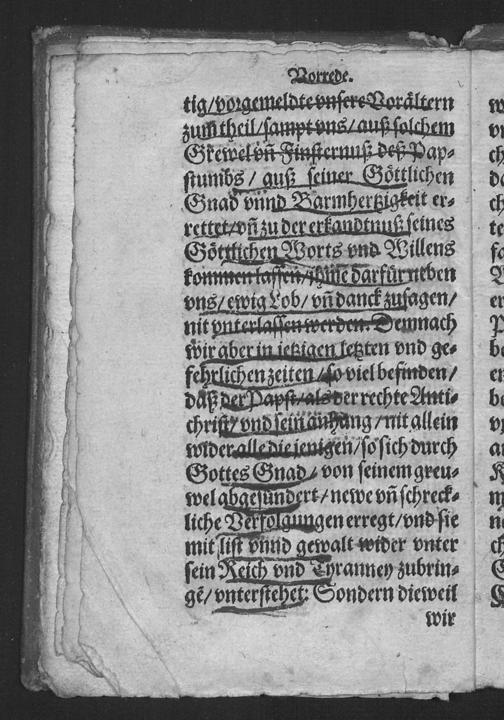 Vorrede.
tig/vorgemeldte vnsere Vorältern
zum theil/sampt vns/auß solchem
Grewel vñ Finsternuß deß Pap-
stumbs/ auß seiner Göttlichen
Gnad vnnd Barmhertzigkeit er-
rettet/vñ zu der erkandtnuß seines
Göttlichen Worts vnd Willens
kommen lassen/ihme darfür neben
vns/ewig Lob/vñ danck zusagen/
nit vnterlassen werden. Demnach
wir aber in jetzigen letzten vnd ge-
fehrlichen zeiten/so viel befinden/
daß der Papst/als der rechte Anti-
christ/vnd sein anhang/nit allein
wider alle die jenigen/so sich durch
Gottes Gnad/ von seinem greu-
wel abgesündert/newe vñ schreck-
liche Verfolgungen erregt/vnd sie
mit list vnnd gewalt wider vnter
sein Reich vnd Tyranney zubrin-
gẽ/vnterstehet: Sondern dieweil
wir